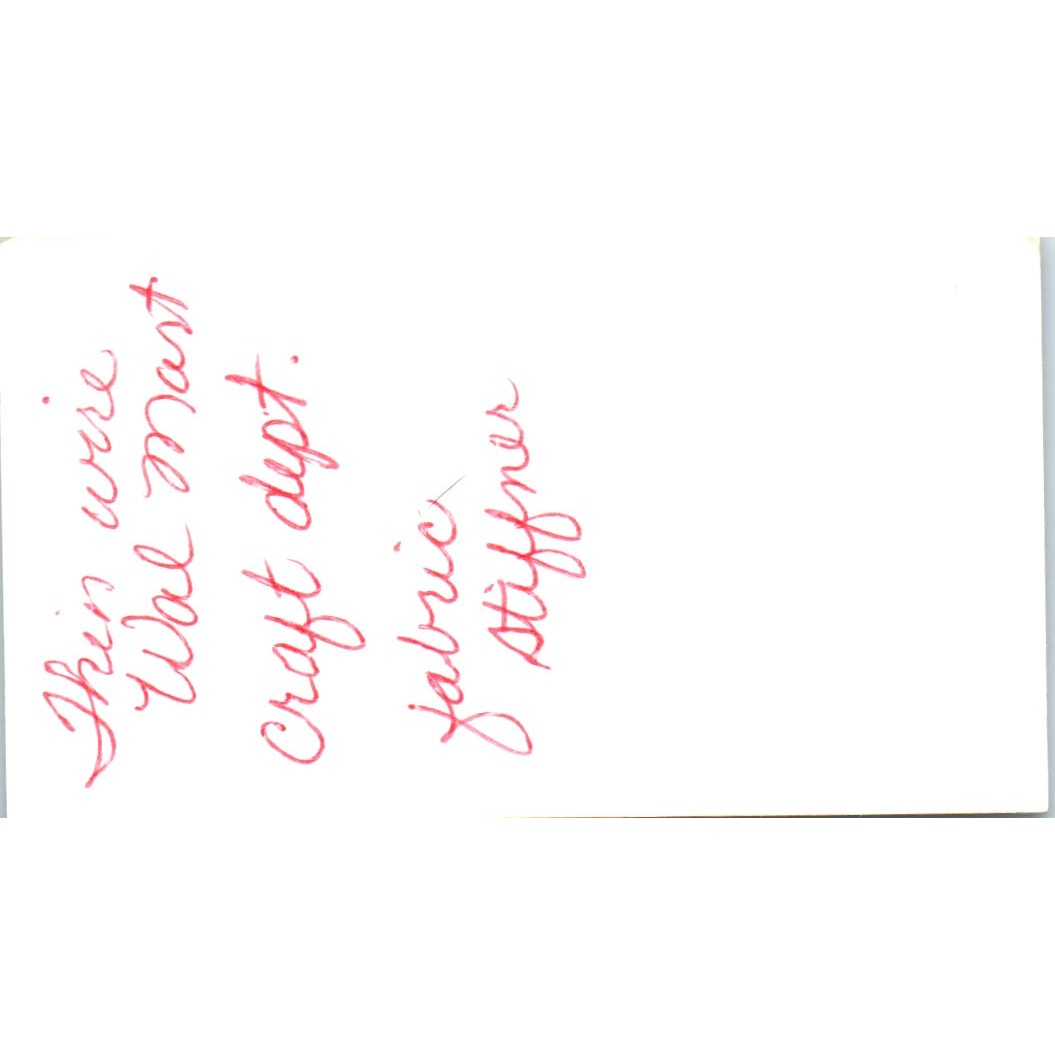 Thin wire
Wal Mart
Craft dept.
fabric
stiffner